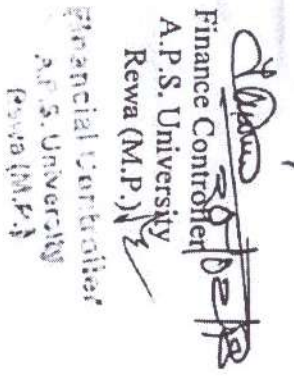 Finance Controller
A.P.S. University
Rewa (M.P.)
Financial Controller
A.P.S. University
Rewa (M.P.)